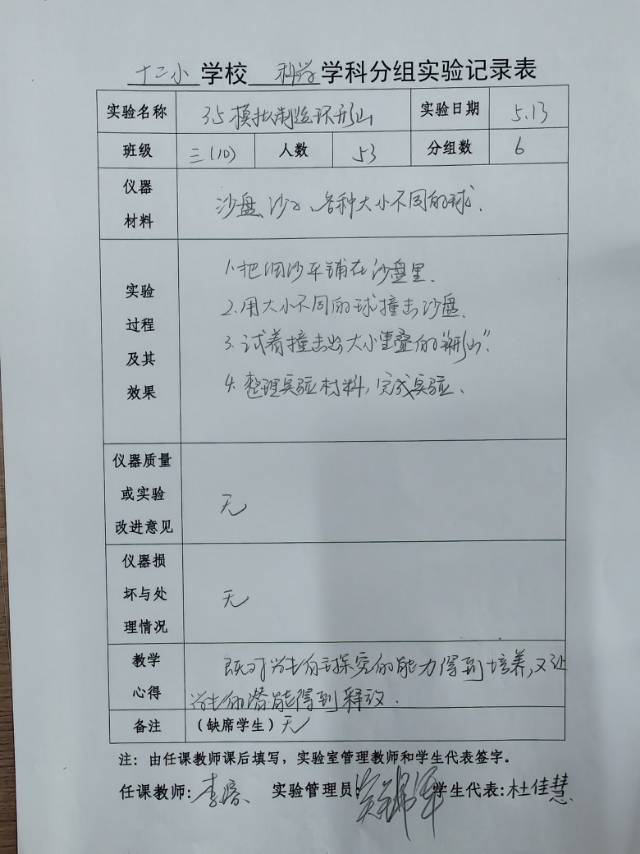 十二小 学校 科学 学科分组实验记录表
实验名称 3.5模拟制造环形山 实验日期 5.13
班级 三(10) 人数 53 分组数 6
仪器
材料
沙盘、沙子、各种大小不同的球.
实验
过程
及其
效果
1.把细沙平铺在沙盘里.
2.用大小不同的球撞击沙盘.
3.试着撞击出大小重叠的
4.整理实验材料,完成实验.
仪器质量
或实验
改进意见
无
仪器损
坏与处
理情况
无
教学
心得
学生自主探究的能力得到培养,又让
学生的潜能得到释放.
备注 (缺席学生)无
注:由任课教师课后填写,实验室管理教师和学生代表签字。
任课教师: 李 实验管理员: 学生代表:杜佳慧